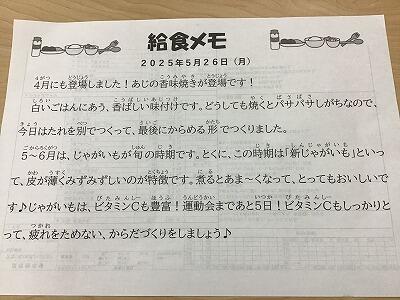 給食メモ
2025年5月26日（月）
4月にも登場しました！あじの香味焼きが登場です！
白いごはんにあう、香ばしい味付けです。どうしても焼くとパサパサしがちなので、
今日はたれを別でつくって、最後にからめる形でつくりました。
5～6月は、じゃがいもが旬の時期です。とくに、この時期は「新じゃがいも」といっ
て、皮が薄くみずみずしいのが特徴です。煮るとあま～くなって、とってもおいしいで
す♪じゃがいもは、ビタミンCも豊富！運動会まであと5日！ビタミンCもしっかりと
って、疲れをためない、からだづくりをしましょう♪